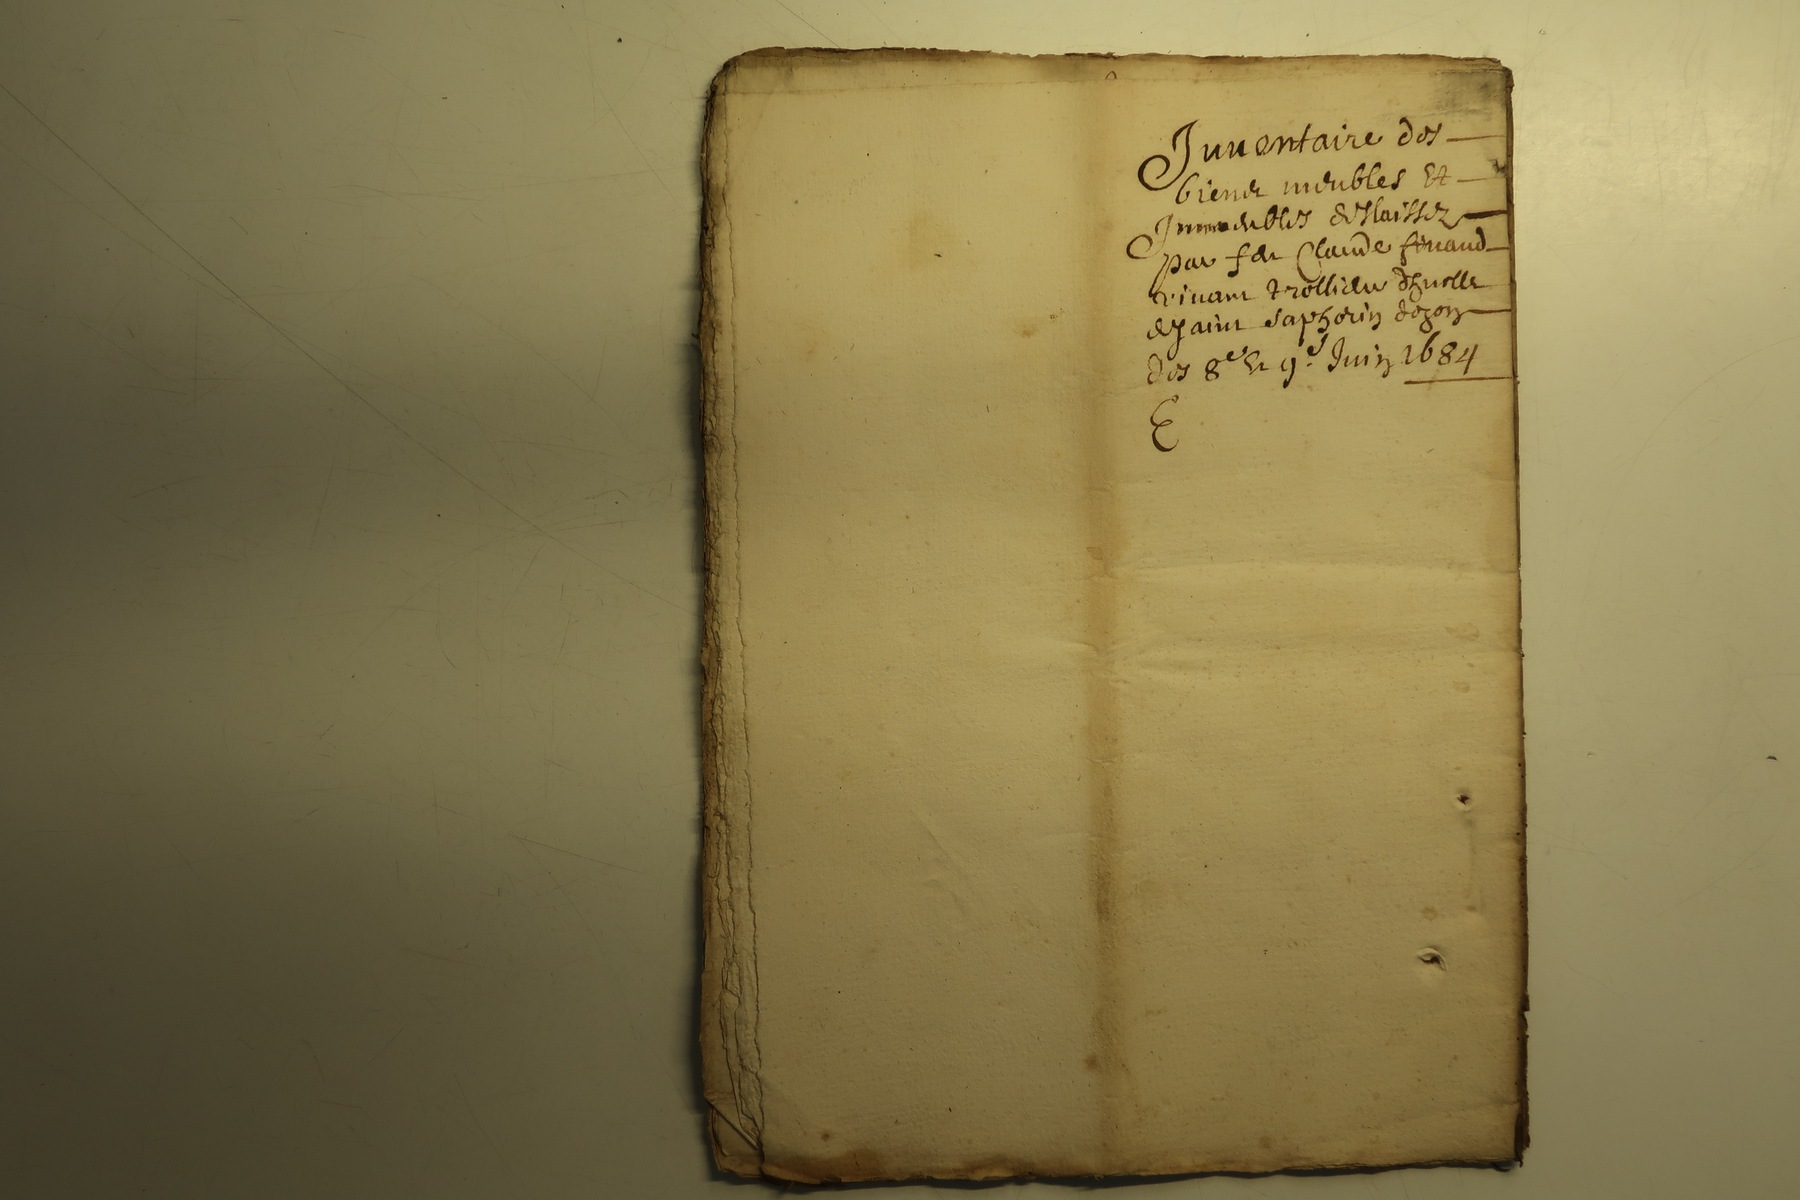 Inuentaire des
biens meubles Et
Immeubles deslaissez
par feu Claude
viuant trollieur d'huolle
de saint saphorin dozon
des 8e et 9e Juin 1684
E